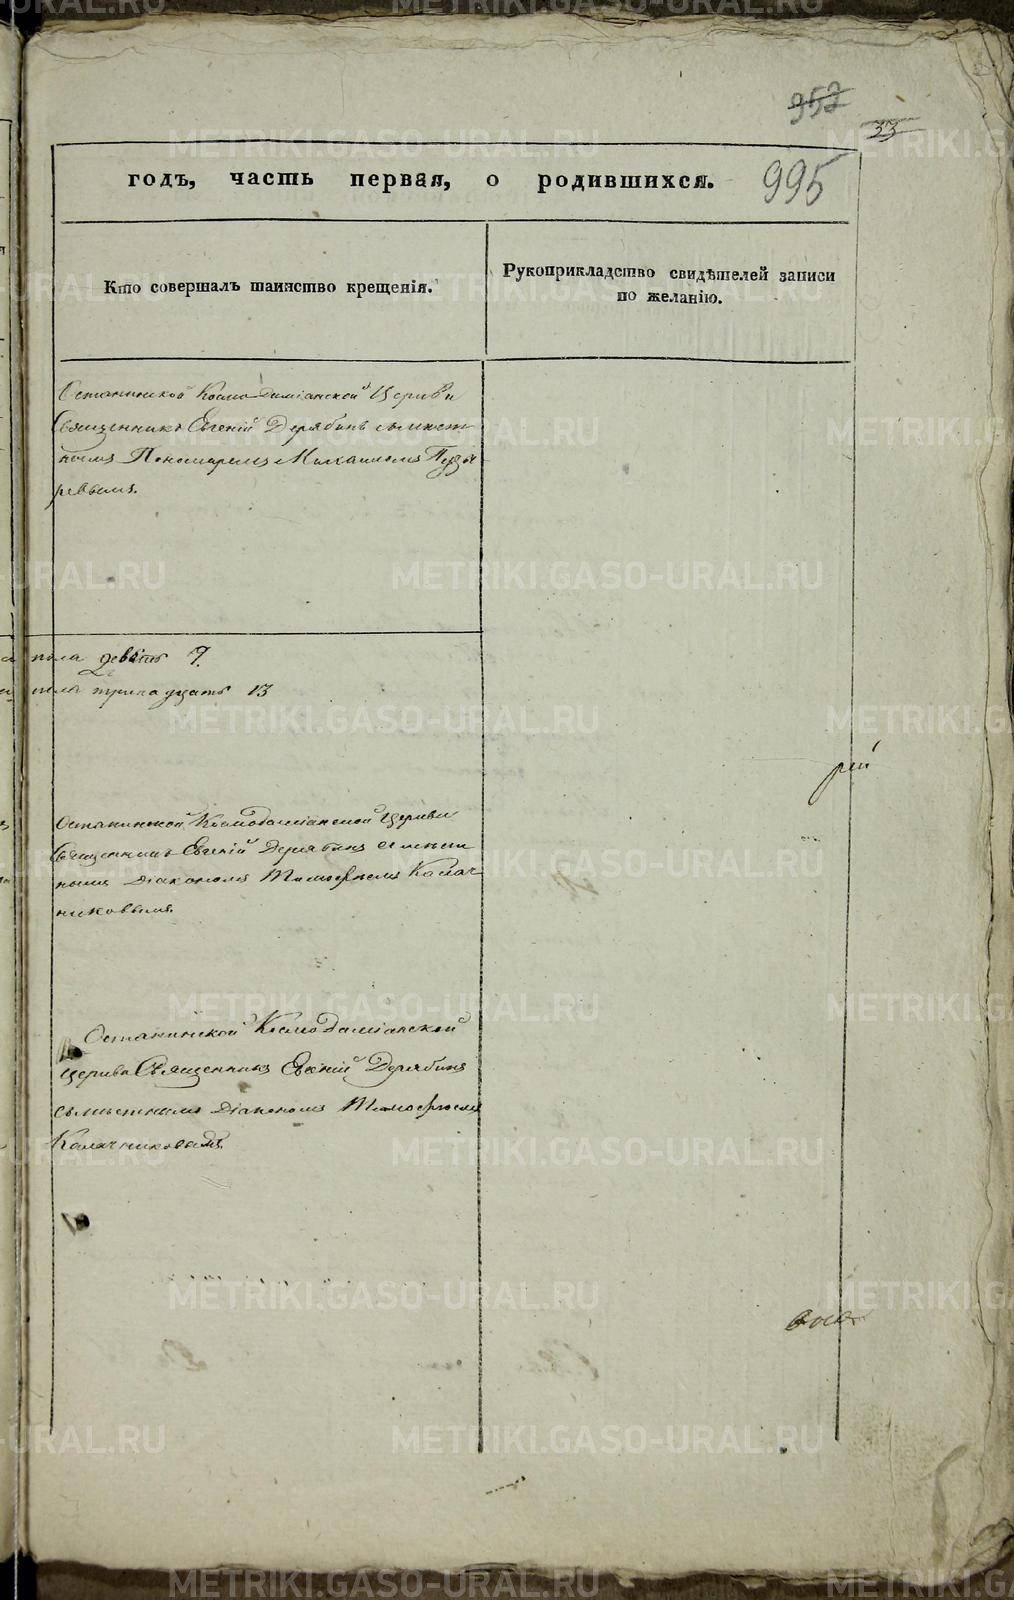 953
33
995
годъ, часть первая, о родившихся.
Кто совершалъ таинство крещенія.
Рукоприкладство свидѣтелей записи
по желанію.
Останинской Космодаміанской Церкви
Священникъ Евгеній Дерябинъ съ мѣст
нымъ Пономаремъ Михаиломъ Пузы
ревымъ.
пола девять 9.
пола тринадцать 13
рей
Останинской Космодаміанской Церкви
Священникъ Евгеній Дерябинъ съ мѣст
нымъ Діакономъ Тимофеемъ Калач
никовымъ.
Останинской Космодаміанской
Церкви Священникъ Евгеній Дерябинъ
съ мѣстнымъ Діакономъ Тимофеемъ
Калачниковымъ
METRIKI.GASO-URAL.RU